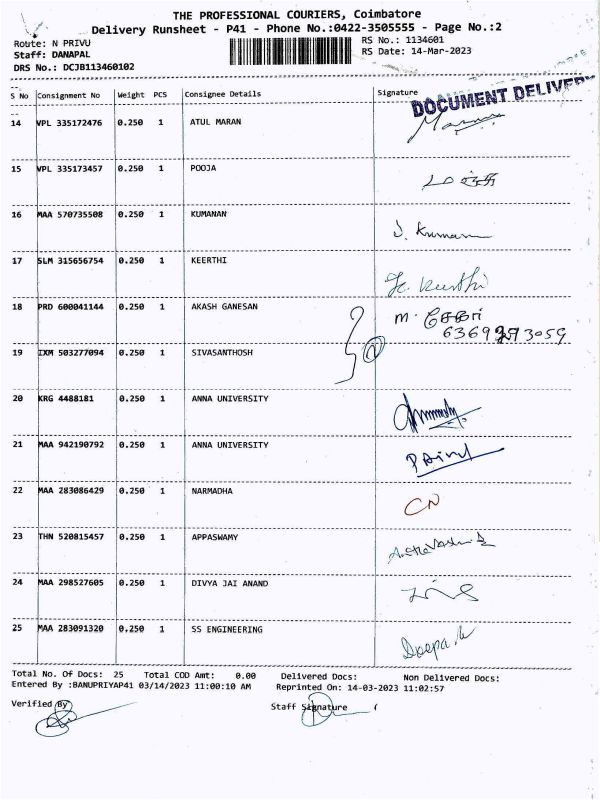 THE PROFESSIONAL COURIERS, Coimbatore
Delivery Runsheet - P41 - Phone No.:0422-3505555 - Page No.:2
Route: N PRIVU RS No.: 1134601
Staff: DANAPAL RS Date: 14-Mar-2023
DRS No.: DCJB113460102
S No Consignment No Weight PCS Consignee Details Signature
DOCUMENT DELIVERY
14 VPL 335172476 0.250 1 ATUL MARAN
15 VPL 335173457 0.250 1 POOJA
16 MAA 570735508 0.250 1 KUMANAN J. Kumaran
17 SLM 315656754 0.250 1 KEERTHI K. Keerthi
18 PRD 600041144 0.250 1 AKASH GANESAN M.
19 IXM 503277094 0.250 1 SIVASANTHOSH
20 KRG 4488181 0.250 1 ANNA UNIVERSITY
21 MAA 942190792 0.250 1 ANNA UNIVERSITY
22 MAA 283086429 0.250 1 NARMADHA CN
23 THN 520815457 0.250 1 APPASWAMY
24 MAA 298527605 0.250 1 DIVYA JAI ANAND
25 MAA 283091320 0.250 1 SS ENGINEERING Deepa.
Total No. Of Docs: 25 Total COD Amt: 0.00 Delivered Docs: Non Delivered Docs:
Entered By :BANUPRIYAP41 03/14/2023 11:00:10 AM Reprinted On: 14-03-2023 11:02:57
Verified By Staff Signature